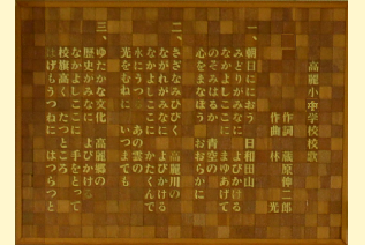 高麗小中学校校歌
作詞 蔵原伸二郎
作曲 林 光
一、朝日ににおう 日和田山
みどりがみなに よびかける
なかよしこに まゆあげて
のぞみはるか 青空の
心をまなほう おおらかに
二、さざなみひびく 高麗川の
ながれがみなに よびかける
なかよしこに かたくんで
水にうつる あの雲の
光をむねに いつまでも
三、ゆたかな文化 高麗郷の
歴史がみなに よびかける
なかよしここに 手をとって
校旗高く たつところ
はげもうつねに はつらつと